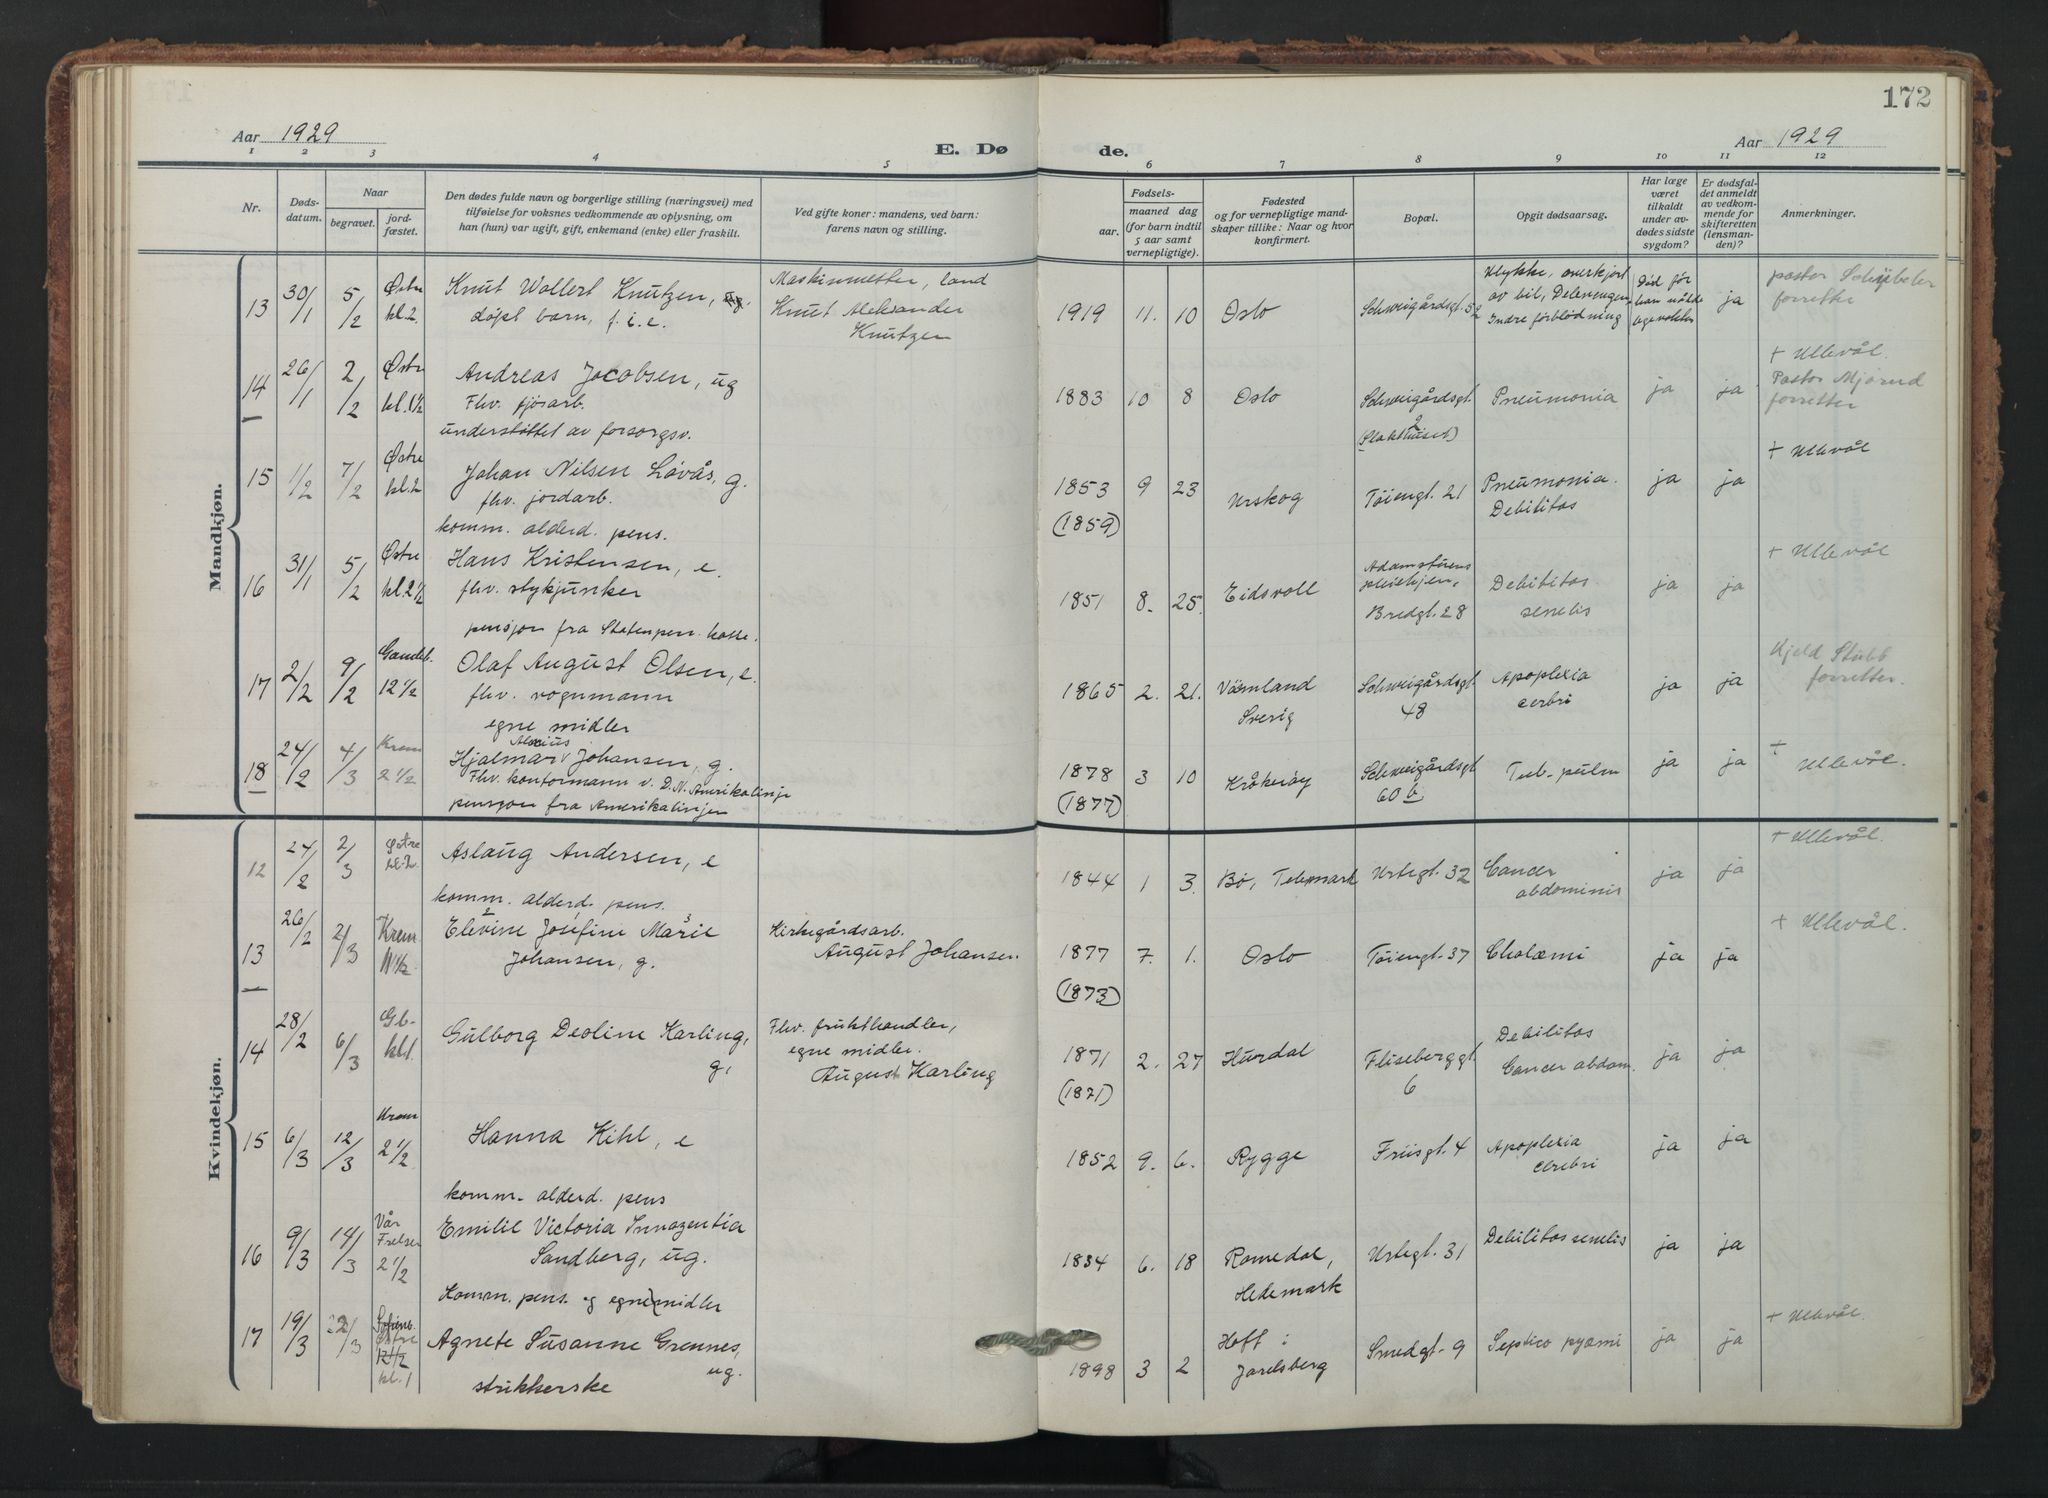 172
Aar 1929
E. Dø
de.
Aar 1929
1 2 3 4 5 6 7 8 9 10 11 12
Nr.
Døds-
datum.
Naar
begravet.
jord-
fæstet.
Den dødes fulde navn og borgerlige stilling (næringsvei) med
tilføielse for voksnes vedkommende av oplysning, om
han (hun) var ugift, gift, enkemand (enke) eller fraskilt.
Ved gifte koner: mandens, ved barn:
farens navn og stilling.
Fødsels-
aar.
maaned dag
(for barn indtil
5 aar samt
vernepligtige).
Fødested
og for vernepligtige mand-
skaper tillike: Naar og hvor
konfirmert.
Bopæl.
Opgit dødsaarsag.
Har læge
været
tilkaldt
under av-
dødes sidste
sygdom?
Er dødsfal-
det anmeldt
av vedkom-
mende for
skifteretten
(lensman-
den)?
Anmerkninger.
Mandkjøn.
13 30/1 5/2 Østre kl. 2.
Knut Wollert Knutzen,
døpt barn, f. i. e.
Maskinmester, land
Knut Aleksander
Knutzen
1919 11. 10 Oslo Schweigårdsgt. 52
Ulykke, overkjørt
av bil,
Indre forblødning
Død før
ja
pastor
forretter
14 26/1 2/2 Østre kl. 1 1/2
Andreas Jacobsen, ug
Fhv. fjøsarb.
understøttet av forsorgsv.
1883 10 8 Oslo Schweigårdsgt. 2
(Slakthuset)
Pneumonia ja ja
+ Ullevål.
Pastor Mjørud
forretter
15 1/2 7/2 Østre kl. 2
Johan Nilsen Løvås, g.
fhv. jordarb.
komm. alderd. pens.
1853 9 23 Urskog Tøiengt. 21
(1859)
Pneumonia.
Debilitas
ja ja
+ Ullevål
16 31/1 5/2 Østre kl. 2 1/2
Hans Kristensen, e.
fhv. stykjunker
pensjon fra Statenpen. kasse.
1851 8. 25. Eidsvoll
Adamstuens
pleiehjem,
Bredgt. 28
Debilitas
senilis
ja ja
+ Ullevål
17 2/2 9/2 Gamleb. 12 1/2
Olaf August Olsen, e.
fhv. vognmann
egne midler
1865 2. 21. Värmland
Sverig
Schweigårdsgt.
48
Apoplexia
cerbri
ja ja
Kjeld Stubb
forretter.
18 24/2 4/3 Krem 2 1/2
Alexius
Hjalmar Johansen, g.
Fhv. kontormann v. D. N. Amerikalinje
pensjon fra Amerikalinjen
1878 3 10 Kråkerøy
(1877)
Schweigårdsgt
60 b.
Tub. pulm ja ja
+
Ullevål.
Kvindekjøn.
12 24/2 2/3 Østre kl. 2
Aslaug Andersen, e
komm. alderd. pens.
1844 1 3. Bø, Telemark Urtegt. 32
Cancer
abdominis
ja ja
+ Ullevål.
13 26/2 2/3 Krem 11 1/2
2 3
Elevine Josefine Marie
Johansen, g.
Kirkegårdsarb.
August Johansen.
1877 7. 1. Oslo Tøiengt. 37 Cholæmi ja ja
(1873)
+ Ullevål.
14 28/2 6/3 Gb. kl 1.
Gulborg Deoline Karling,
g,
Fhv. frukthandler,
egne midler.
August Karling
1871 2. 27 Hurdal
(1871)
Fliseberggt.
6
Debilitas
Cancer abdom.
ja ja
15 6/3 12/3 Krem 2 1/2
Hanna Kihl, e
komm. alderd. pens
1852 9. 6. Rygge Friisgt. 4
Apoplexia
cerebri
ja ja
16 9/3 14/3 Vår Frelser 2 1/2
Emilie Victoria Innozentia
Sandberg, ug.
Komm. pens. og egne midler
1834 6. 18
Romedal,
Hedemark
Urtegt. 31 Debilitas senilis ja ja
17 19/3 22/3 Sofienb. Østre 12 1/2 kl. 1
Agnete Susanne Grennes,
ug.
strikkerske
1898 3 2
Hoff i
Jarlsberg
Smedgt. 9 Septico pyæmi ja ja
+ Ullevål.